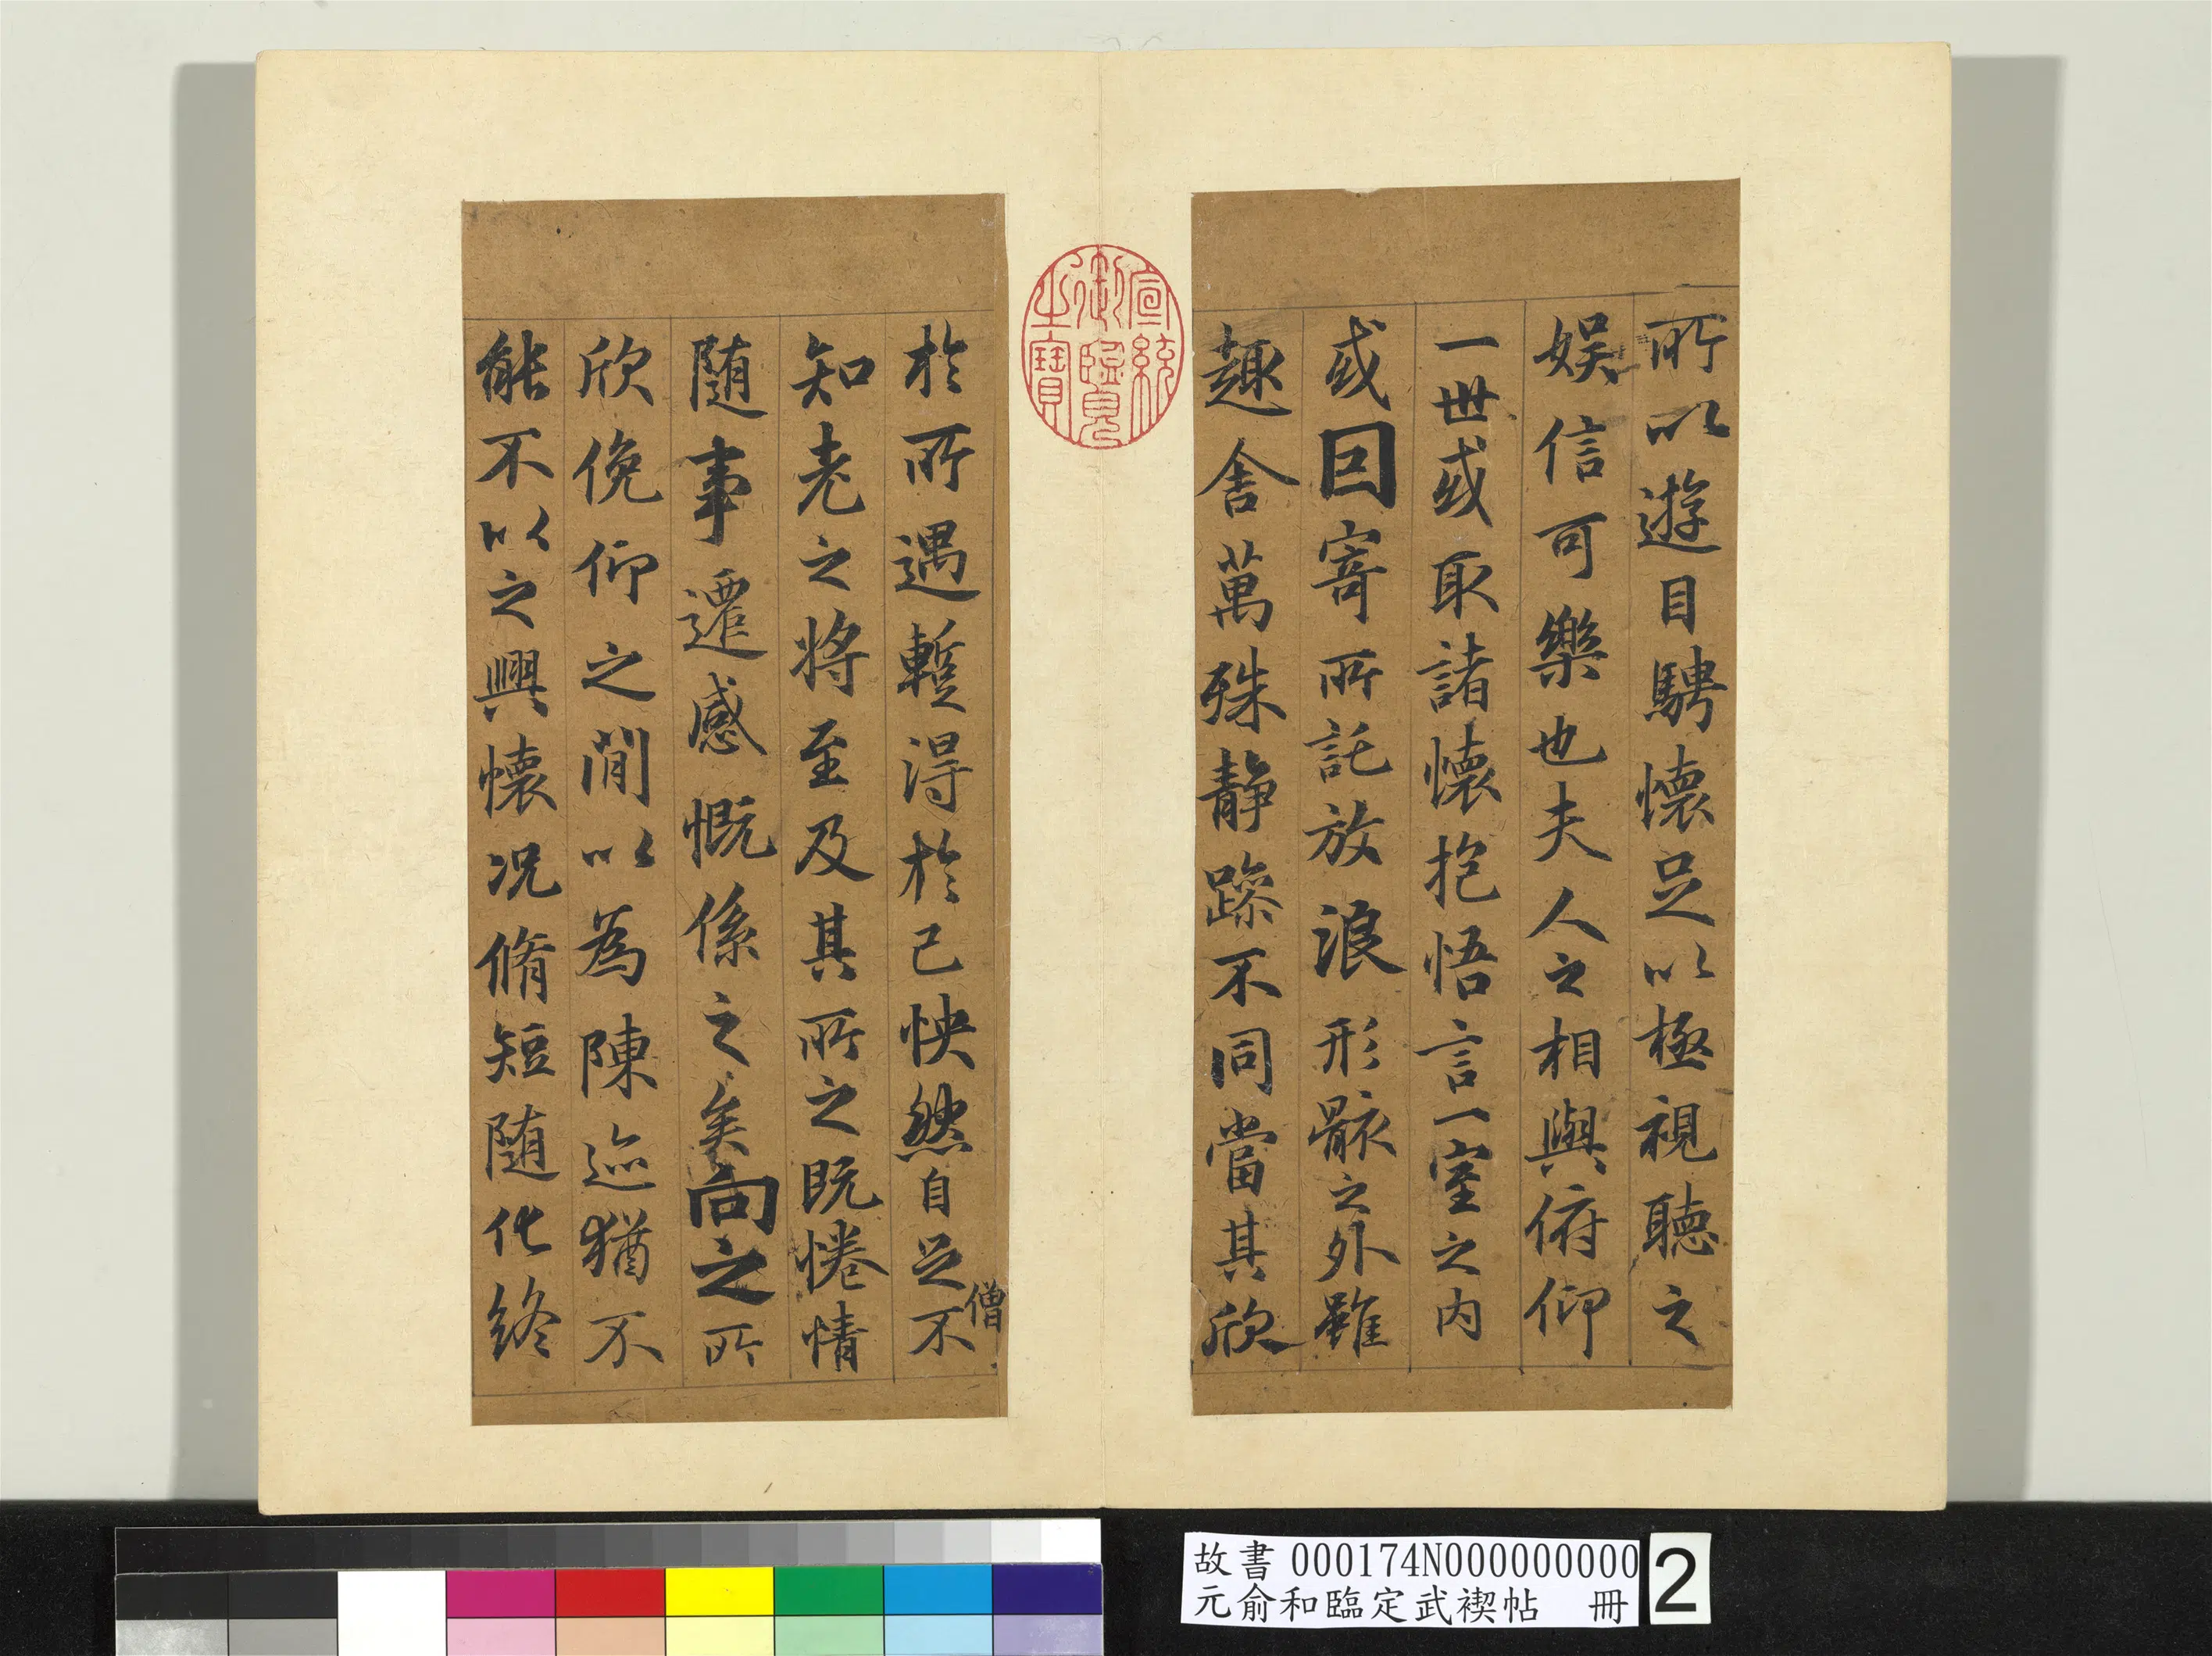 所以遊目騁懷足以極視聽之
娛信可樂也夫人之相與俯仰
一世或取諸懷抱悟言一室之內
或因寄所託放浪形骸之外雖
趣舍萬殊靜躁不同當其欣
於所遇蹔得於己怏然自足不
僧
知老之將至及其所之既惓情
隨事遷感慨係之矣向之所
欣俛仰之閒以為陳迹猶不
能不以之興懷況脩短隨化終
宣統御覽之寶
故書 000174N000000000
元俞和臨定武禊帖 冊
2